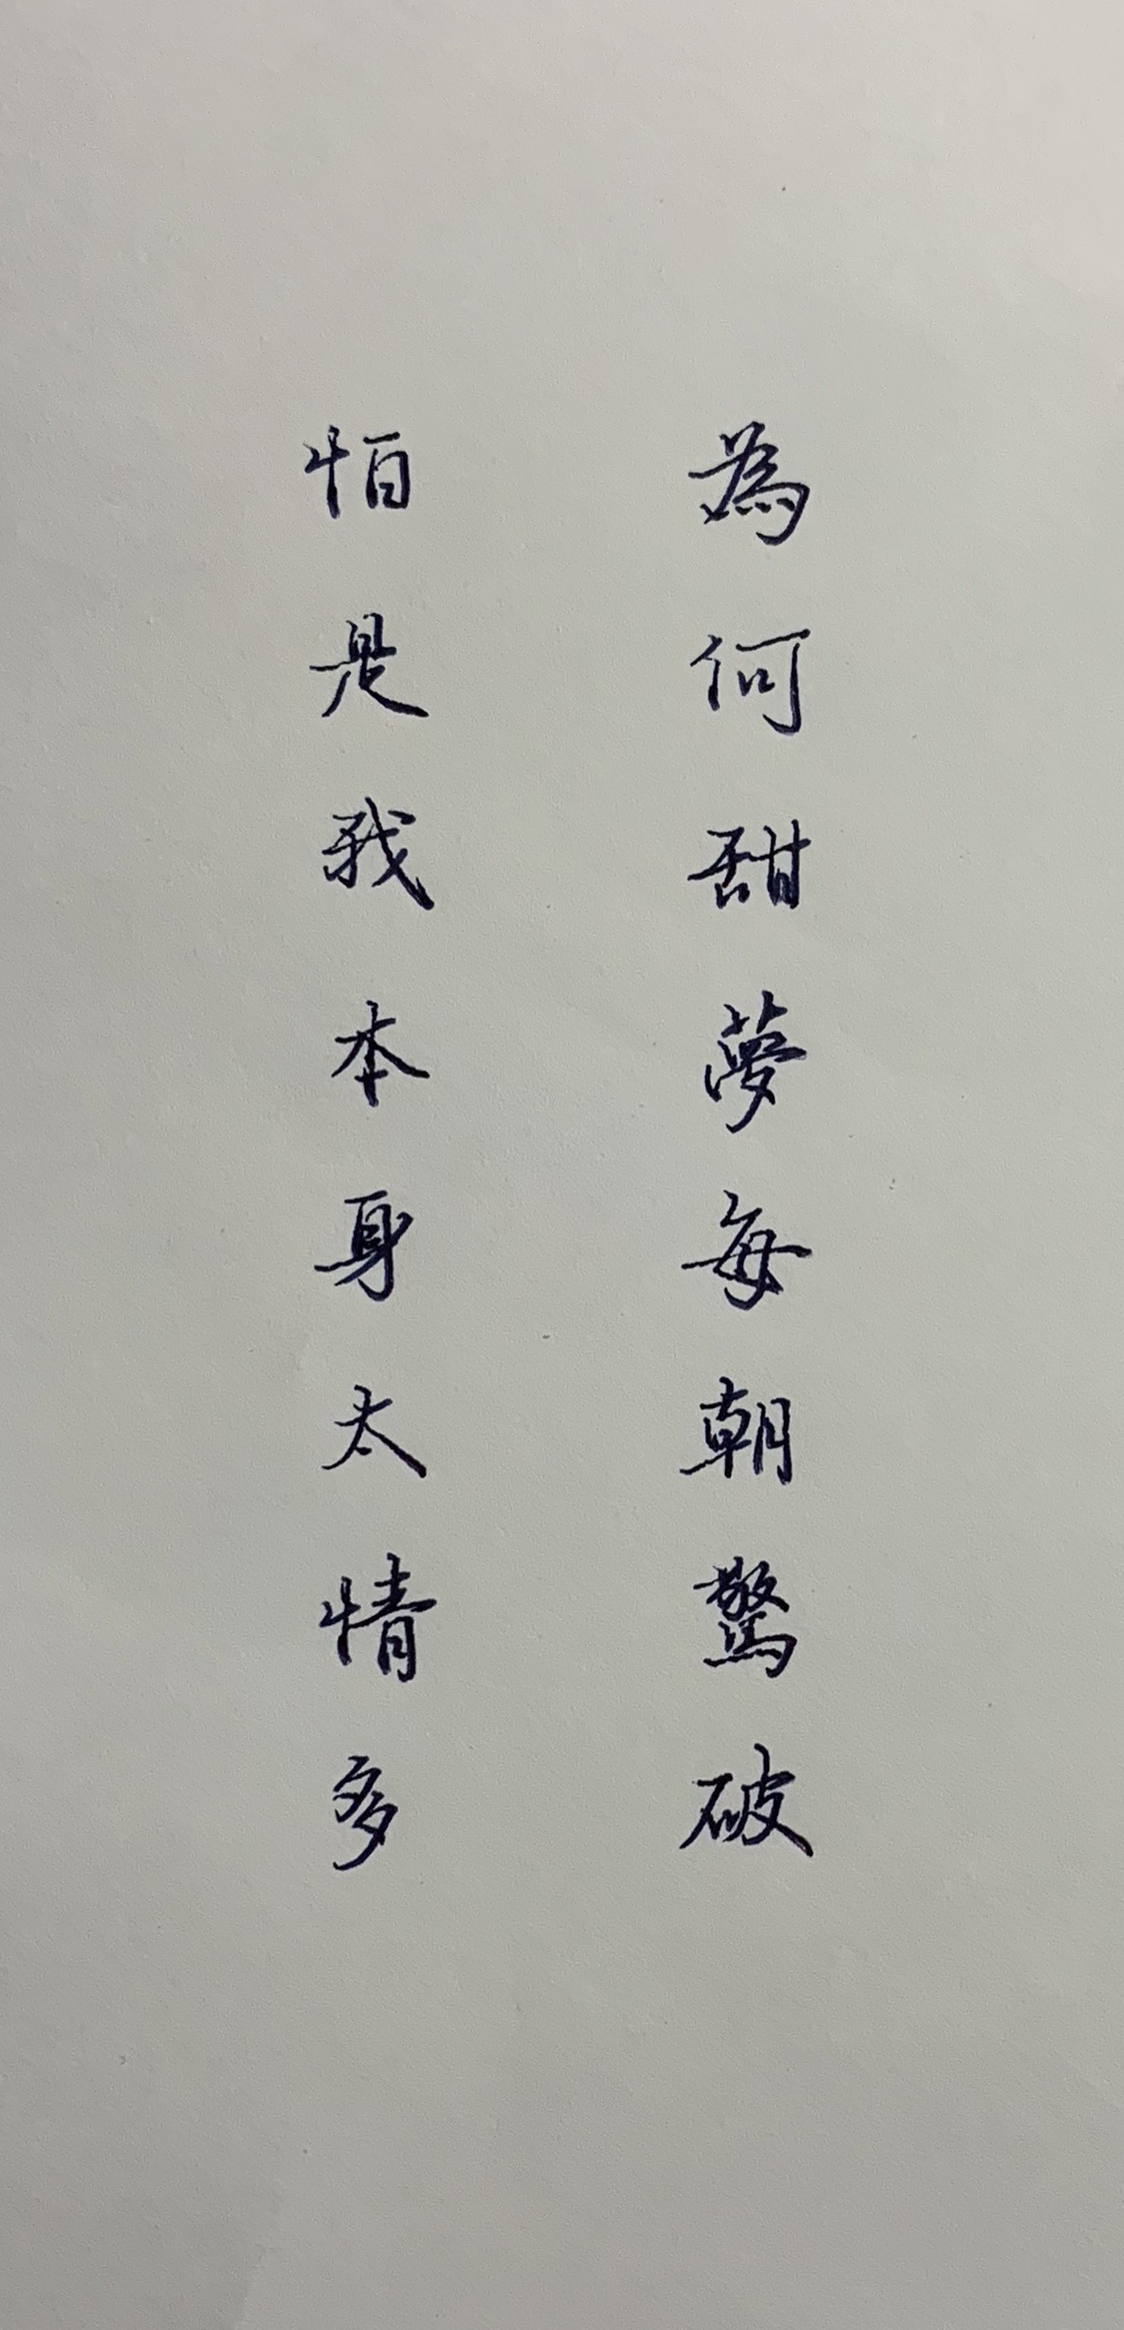 為何甜夢每朝驚破
怕是我本身太情多